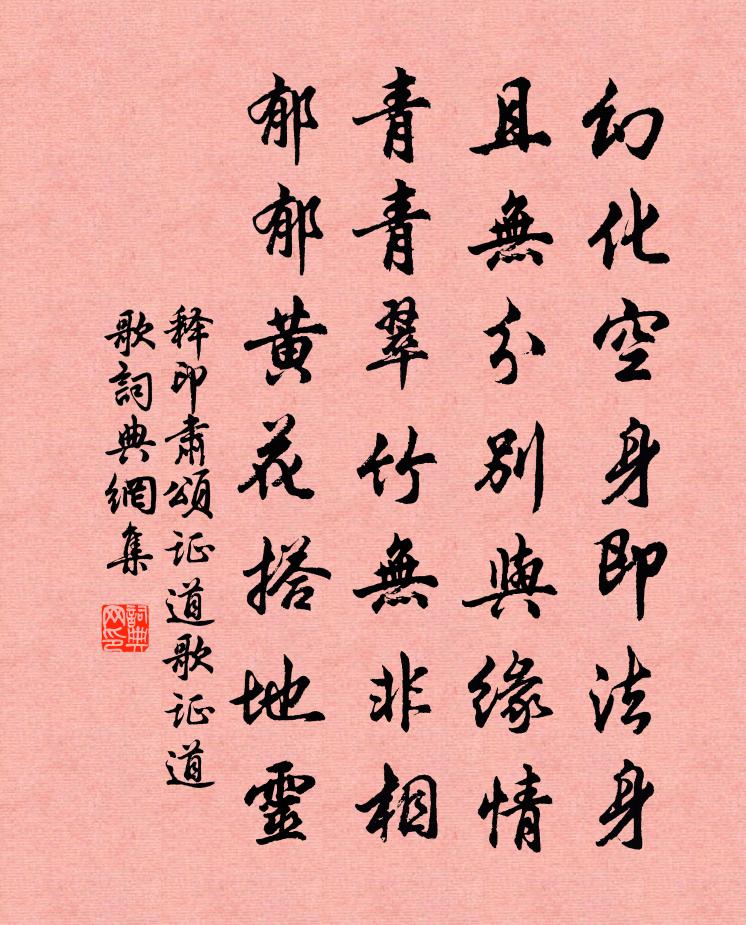 幻化空身即法身
且無分別與緣情
青青翠竹無非相
郁郁黄花搭地靈
释印肅頌证道歌证道
歌詞典網集
詞典
网印